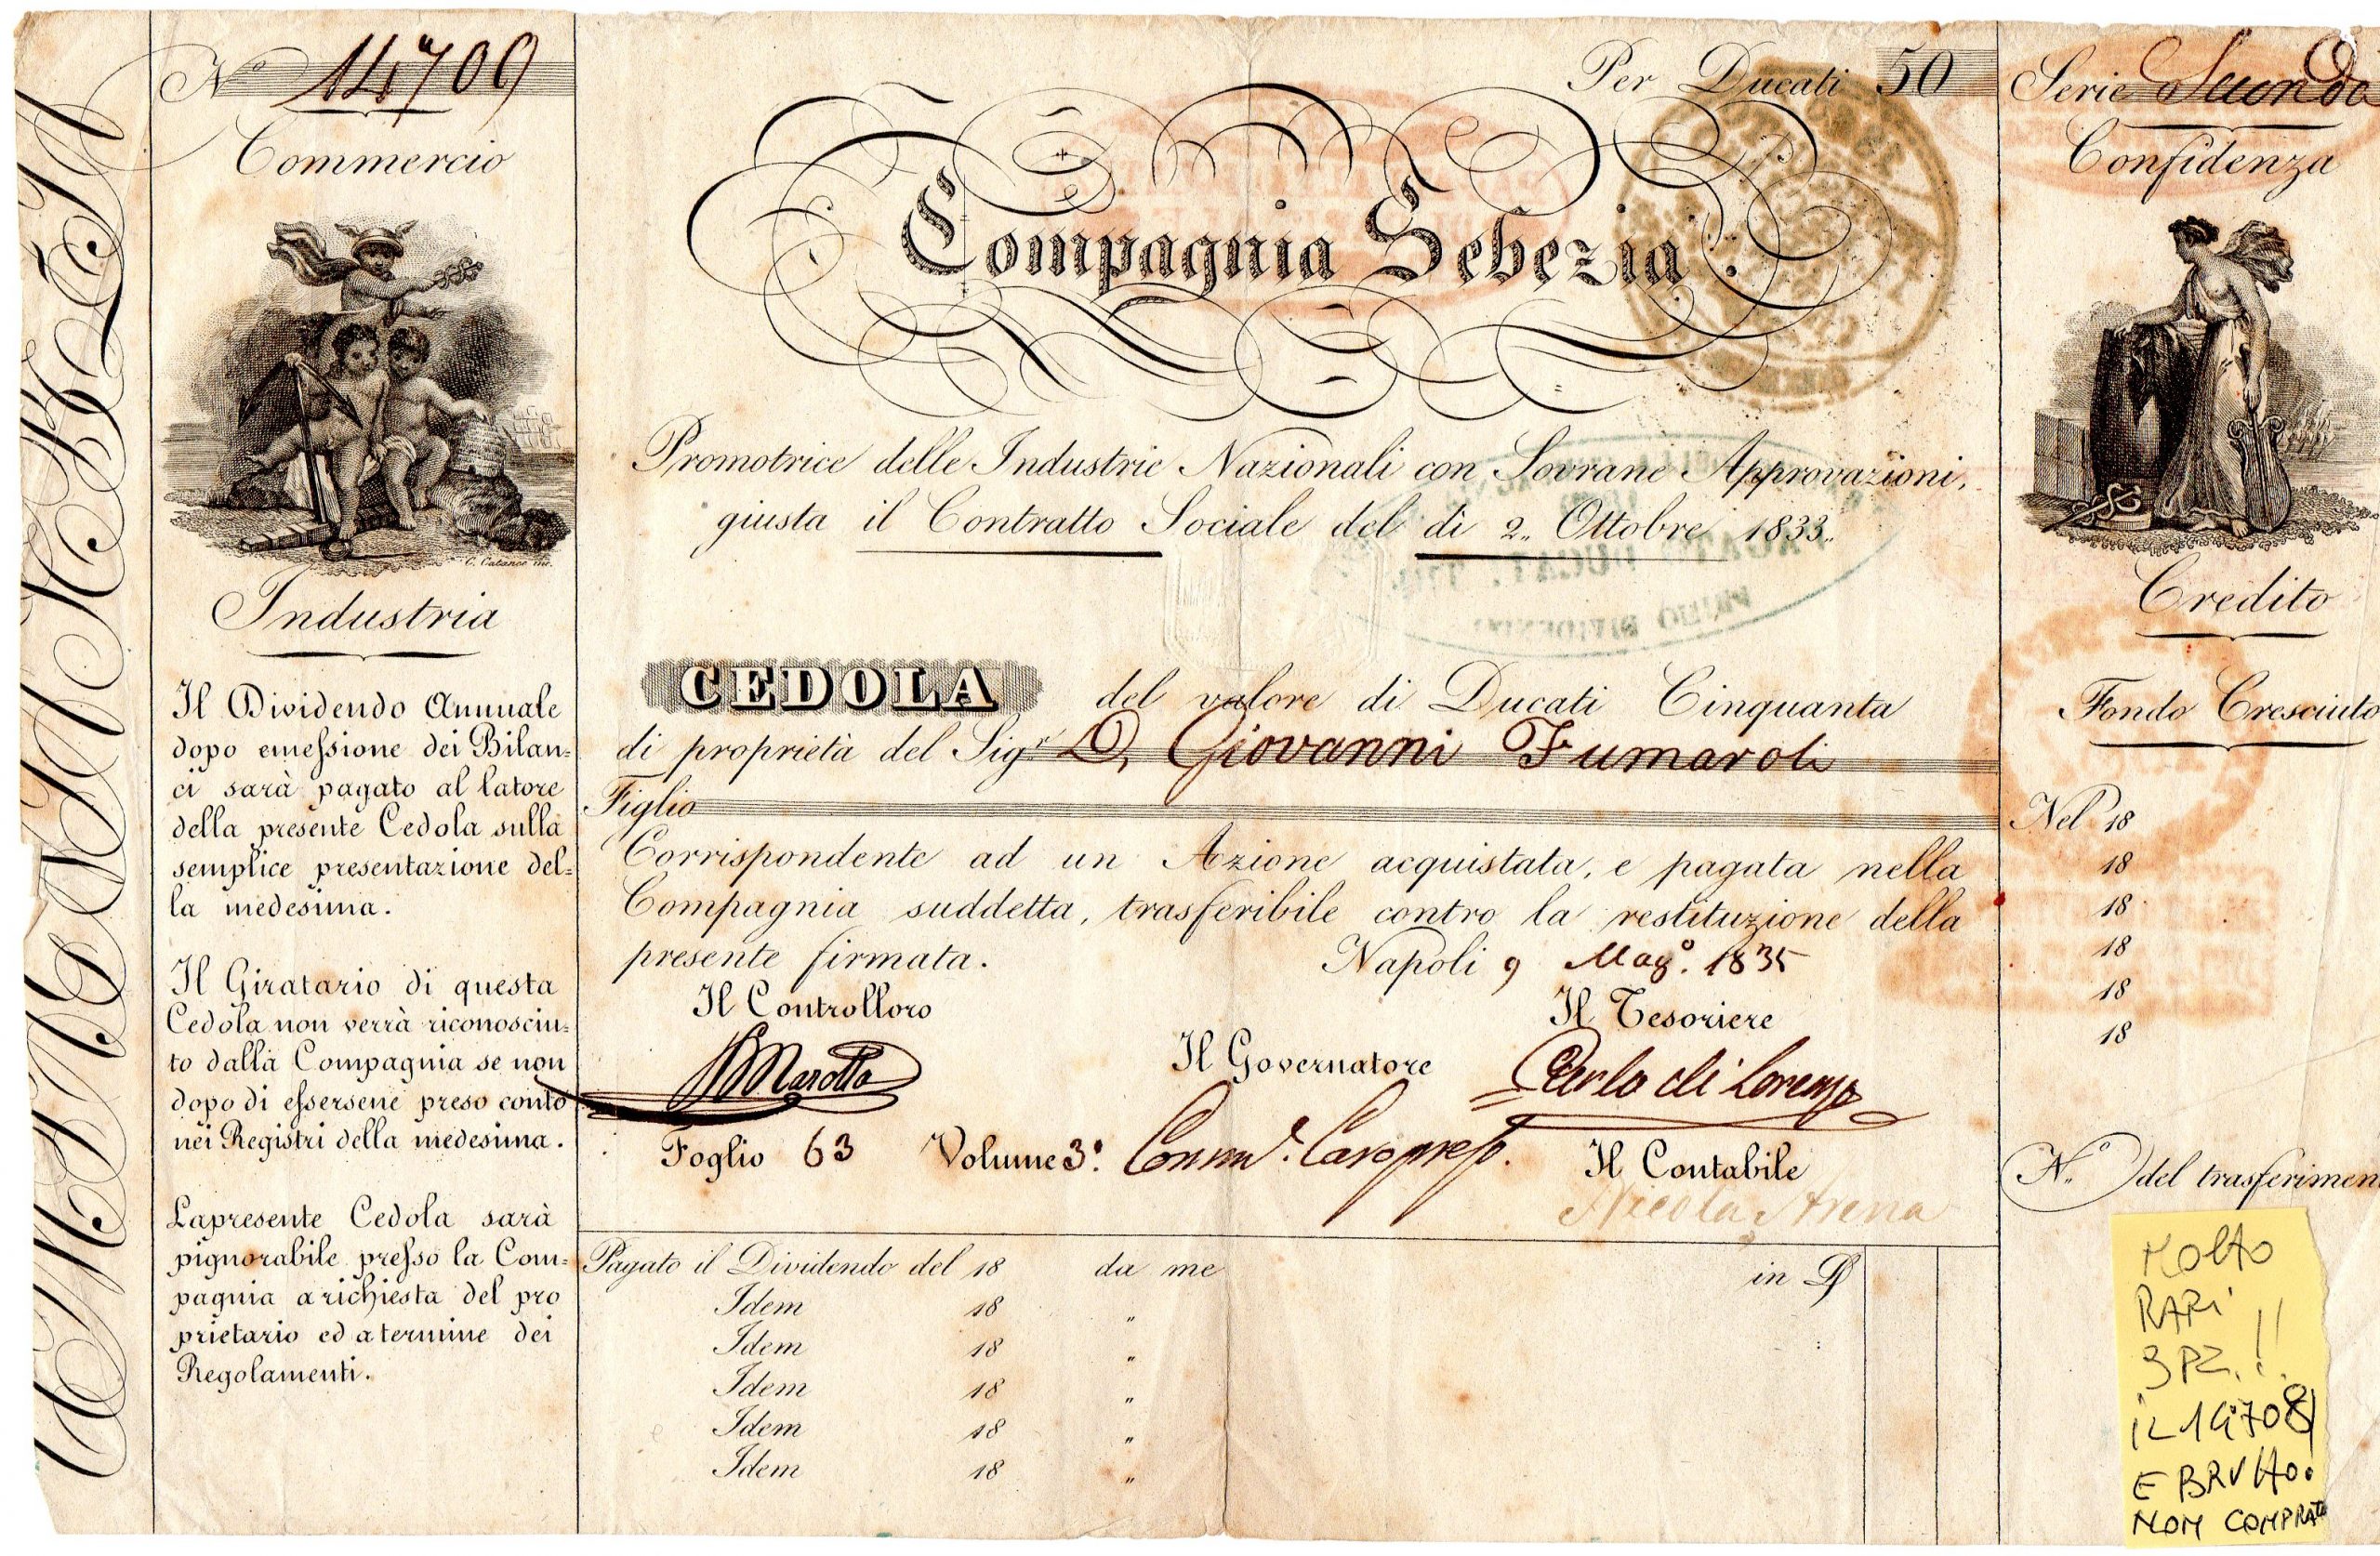 No 14709
Commercio
C. Cataneo inc.
Industria
Il Dividendo Annuale
dopo emessione dei Bilan=
ci sarà pagato al latore
della presente Cedola sulla
semplice presentazione del=
la medesima.
Il Giratario di questa
Cedola non verrà riconosciu=
to dalla Compagnia se non
dopo di essersene preso conto
nei Registri della medesima.
Lapresente Cedola sarà
pignorabile presso la Com=
pagnia a richiesta del pro
prietario ed a termine dei
Regolamenti.
Per Ducati 50
Compagnia Sebezia
Promotrice delle Industrie Nazionali con Sovrane Approvazioni,
giusta il Contratto Sociale del dì 2,, Ottobre 1833,,
PRIMO DIVIDENDO
CEDOLA del valore di Ducati Cinquanta
di proprietà del Sigr D. Giovanni Fumaroli
Figlio
Corrispondente ad un Azione acquistata, e pagata nella
Compagnia suddetta, trasferibile contro la restituzione della
presente firmata.
Napoli 9 Mago. 1835
Il Controlloro
Il Tesoriere
Marotta
Il Governatore
Carlo di Lorenzo
Foglio 63 Volume 3o.
Il Contabile
Nicola Arena
Pagato il Dividendo del 18 da me in D
Idem 18 "
Idem 18 "
Idem 18 "
Idem 18 "
Idem 18 "
Serie Seconda
Confidenza
Credito
Fondo Cresciuto
Nel 18
18
18
18
18
18
No. del trasferimen
MOLTO
RARI
3 PZ.!!
IL 14708
E BRUTTO.
NON COMPRATO